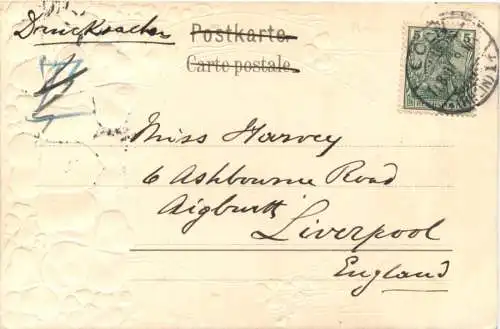 Drucksachen
Postkarte.
Carte postale.
5 5
Miss Harvey
6 Ashbourne Road
Aigburth
Liverpool
England